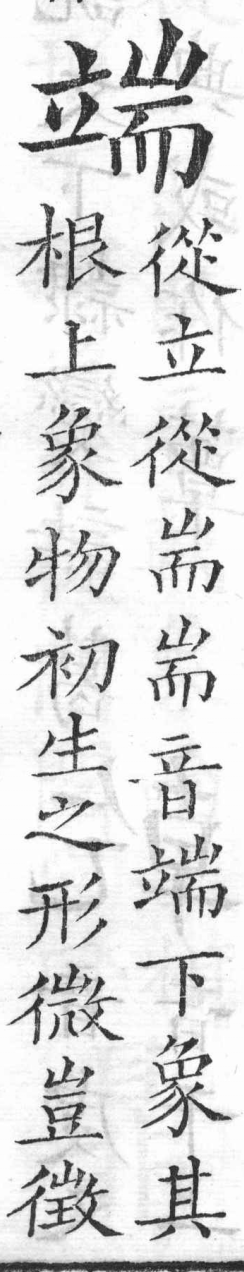 端
從立從耑耑音端下象其
根上象物初生之形微豈徵